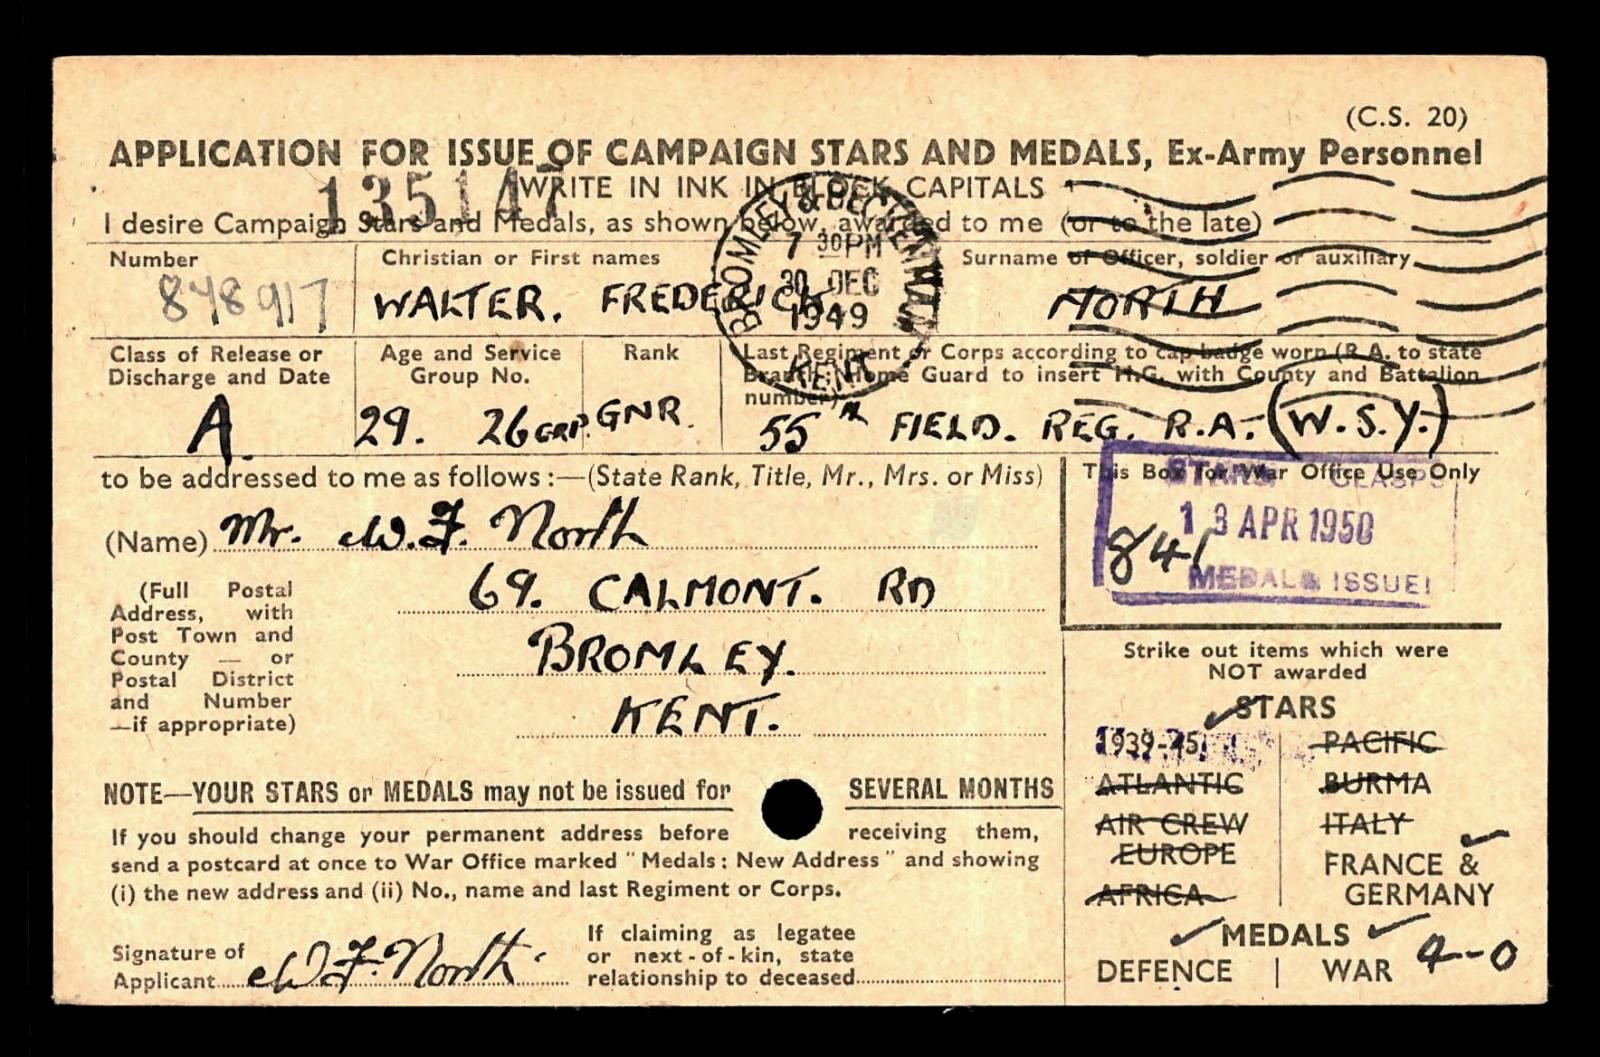 (C.S. 20)
APPLICATION FOR ISSUE OF CAMPAIGN STARS AND MEDALS, Ex-Army Personnel
135147
WRITE IN INK IN BLOCK CAPITALS
I desire Campaign Stars and Medals, as shown below, awarded to me (or to the late)
BROMLEY & BECKENHAM
7 30PM
30 DEC
1949
KENT
Number Christian or First names Surname of Officer, soldier or auxiliary
848917 WALTER. FREDERICK NORTH
Class of Release or Discharge and Date
Age and Service Group No.
Rank
Last Regiment or Corps according to cap badge worn (R.A. to state
Branch; Home Guard to insert H.G. with County and Battalion
number)
A. 29. 26 GRP. GNR. 55th FIELD. REG. R.A. (W.S.Y.)
to be addressed to me as follows:—(State Rank, Title, Mr., Mrs. or Miss)
(Name) Mr. W.F. North
(Full Postal
Address, with
Post Town and
County — or
Postal District
and Number
—if appropriate)
69. CALMONT. RD
BROMLEY.
KENT.
This Box for War Office Use Only
STARS CLASPS
13 APR 1950
841
MEDALS ISSUE
Strike out items which were
NOT awarded
STARS
1939-45 PACIFIC
ATLANTIC BURMA
AIR CREW EUROPE ITALY
AFRICA FRANCE & GERMANY
MEDALS
DEFENCE | WAR 4-0
NOTE—YOUR STARS or MEDALS may not be issued for SEVERAL MONTHS
If you should change your permanent address before receiving them,
send a postcard at once to War Office marked "Medals: New Address" and showing
(i) the new address and (ii) No., name and last Regiment or Corps.
Signature of
Applicant W.F. North
If claiming as legatee
or next-of-kin, state
relationship to deceased